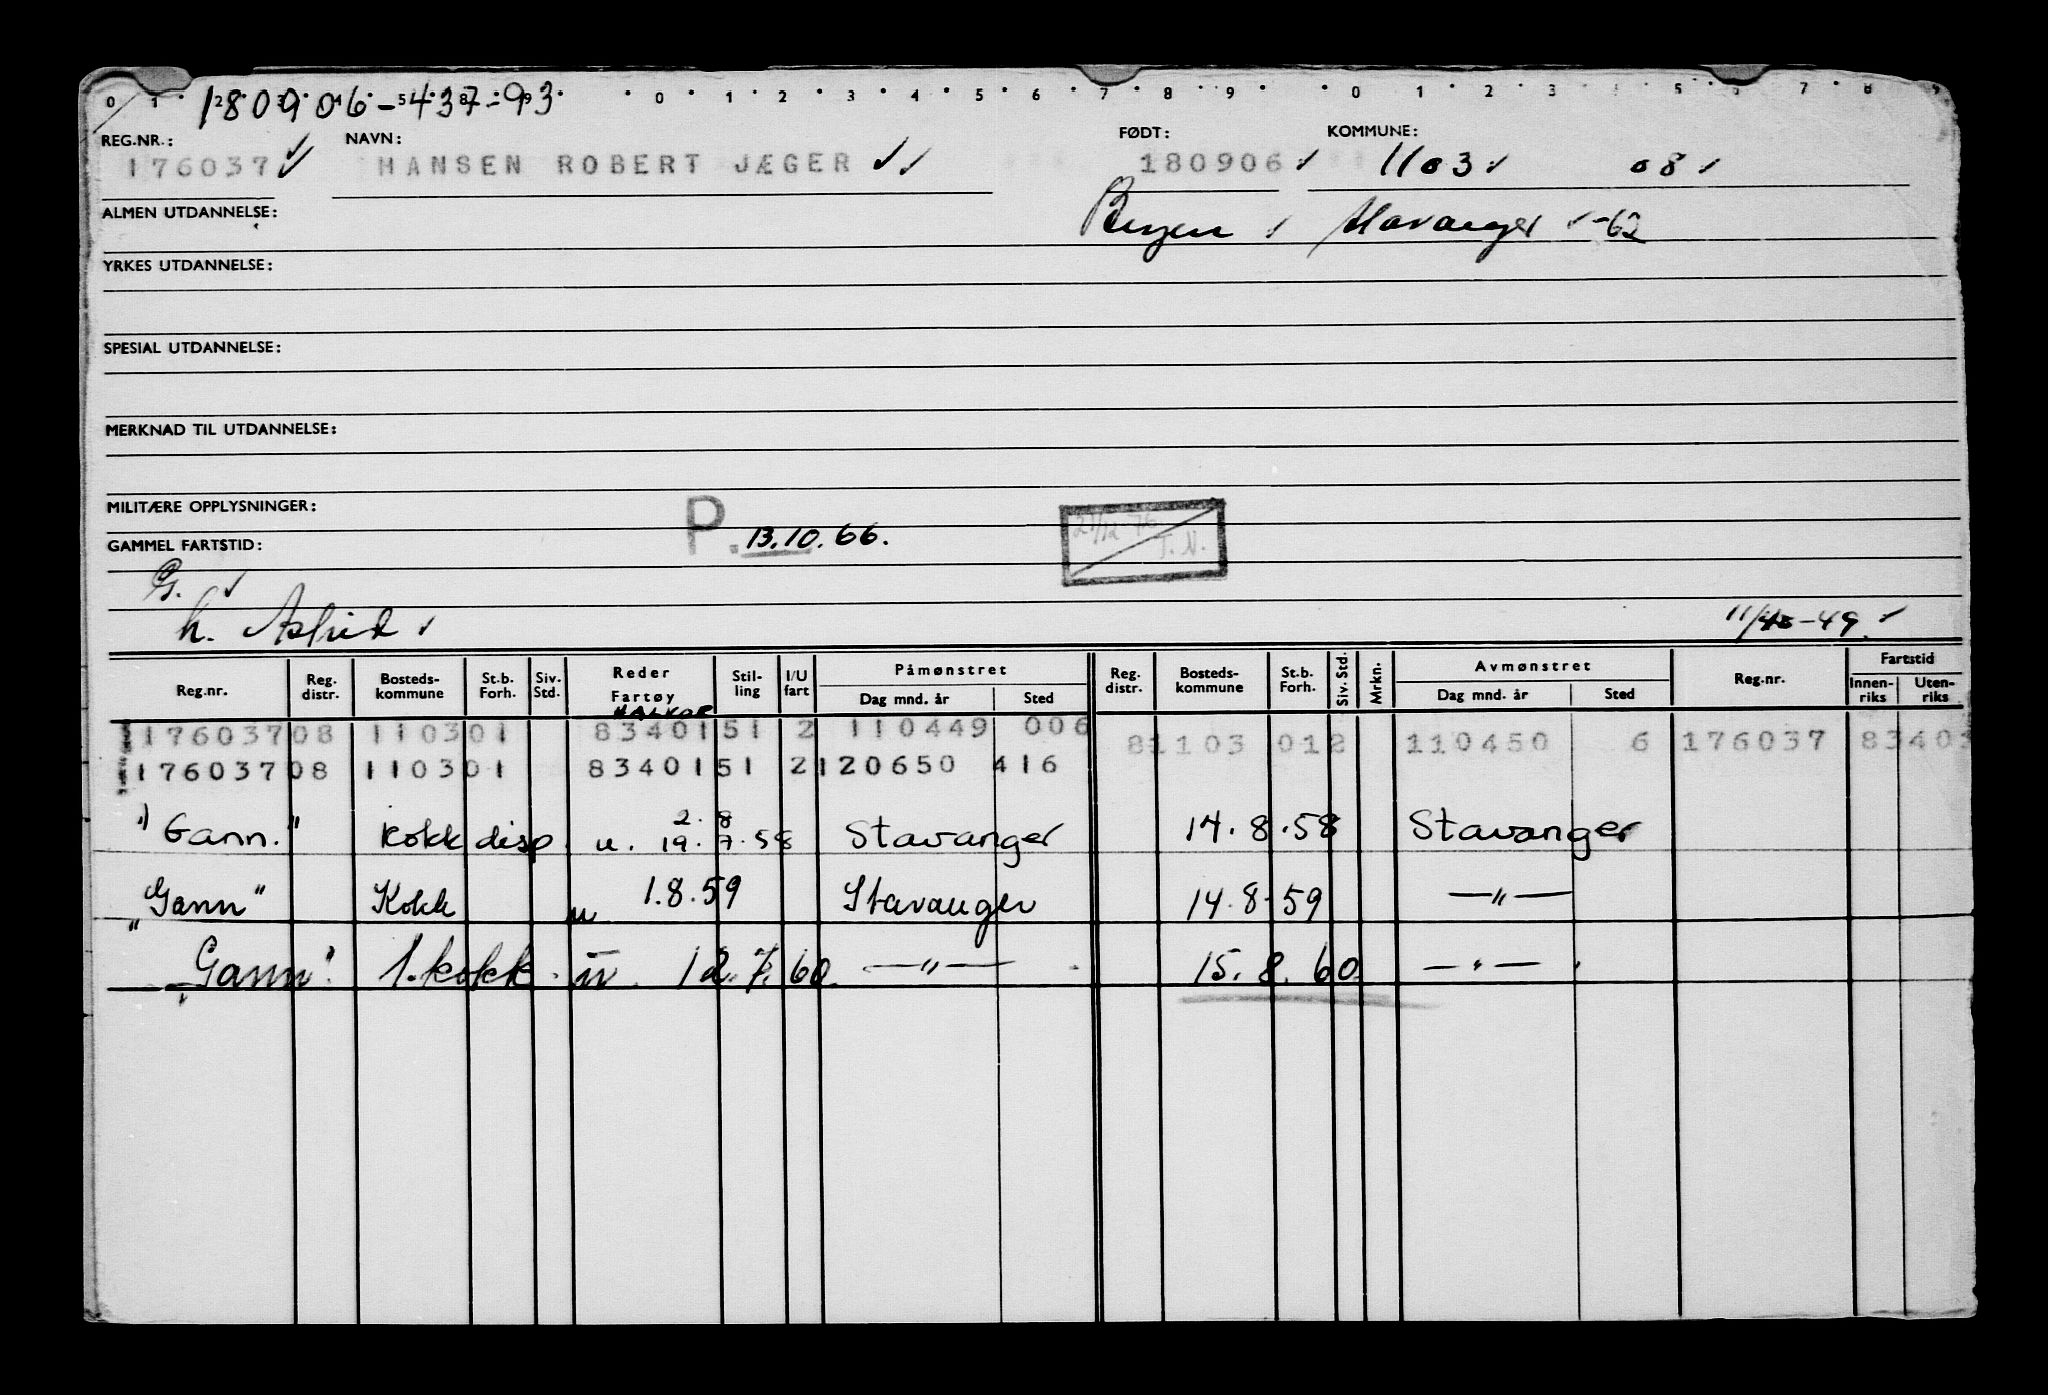 0 1 2 3 4 5 6 7 8 9 0 1 2 3 4 5 6 7 8 9
180906-437-93
REG.NR.: NAVN: FØDT: KOMMUNE:
176037 HANSEN ROBERT JÆGER 180906 1103 08
ALMEN UTDANNELSE: Bergen Stavanger -62
YRKES UTDANNELSE:
SPESIAL UTDANNELSE:
MERKNAD TIL UTDANNELSE:
MILITÆRE OPPLYSNINGER:
P. 13.10.66.
21/12-76 T.N.
GAMMEL FARTSTID:
G.
h. Astrid 11/48-49
Reg.nr. Reg. distr. Bosteds-kommune St.b. Forh. Siv. Std. Reder Fartøy Stil-ling I/U fart Påmønstret Dag mnd. år Sted Reg. distr. Bosteds-kommune St.b. Forh. Siv. Std. Mrkn. Avmønstret Dag mnd. år Sted Reg.nr. Fartstid Innen-riks Uten-riks
HALKOR
176037 08 1103 01 8340151 2 110449 006 81103 012 110450 6 176037 83403
176037 08 1103 01 8340151 2 120650 416
2.8
"Gann." Kokk disp. u. 19.7.58 Stavanger 14.8.58 Stavanger
"Gann" Kokk u 1.8.59 Stavanger 14.8.59 —"—
"Gann". 1. kokk. u. 12.7.60. —"— 15.8.60. —"—